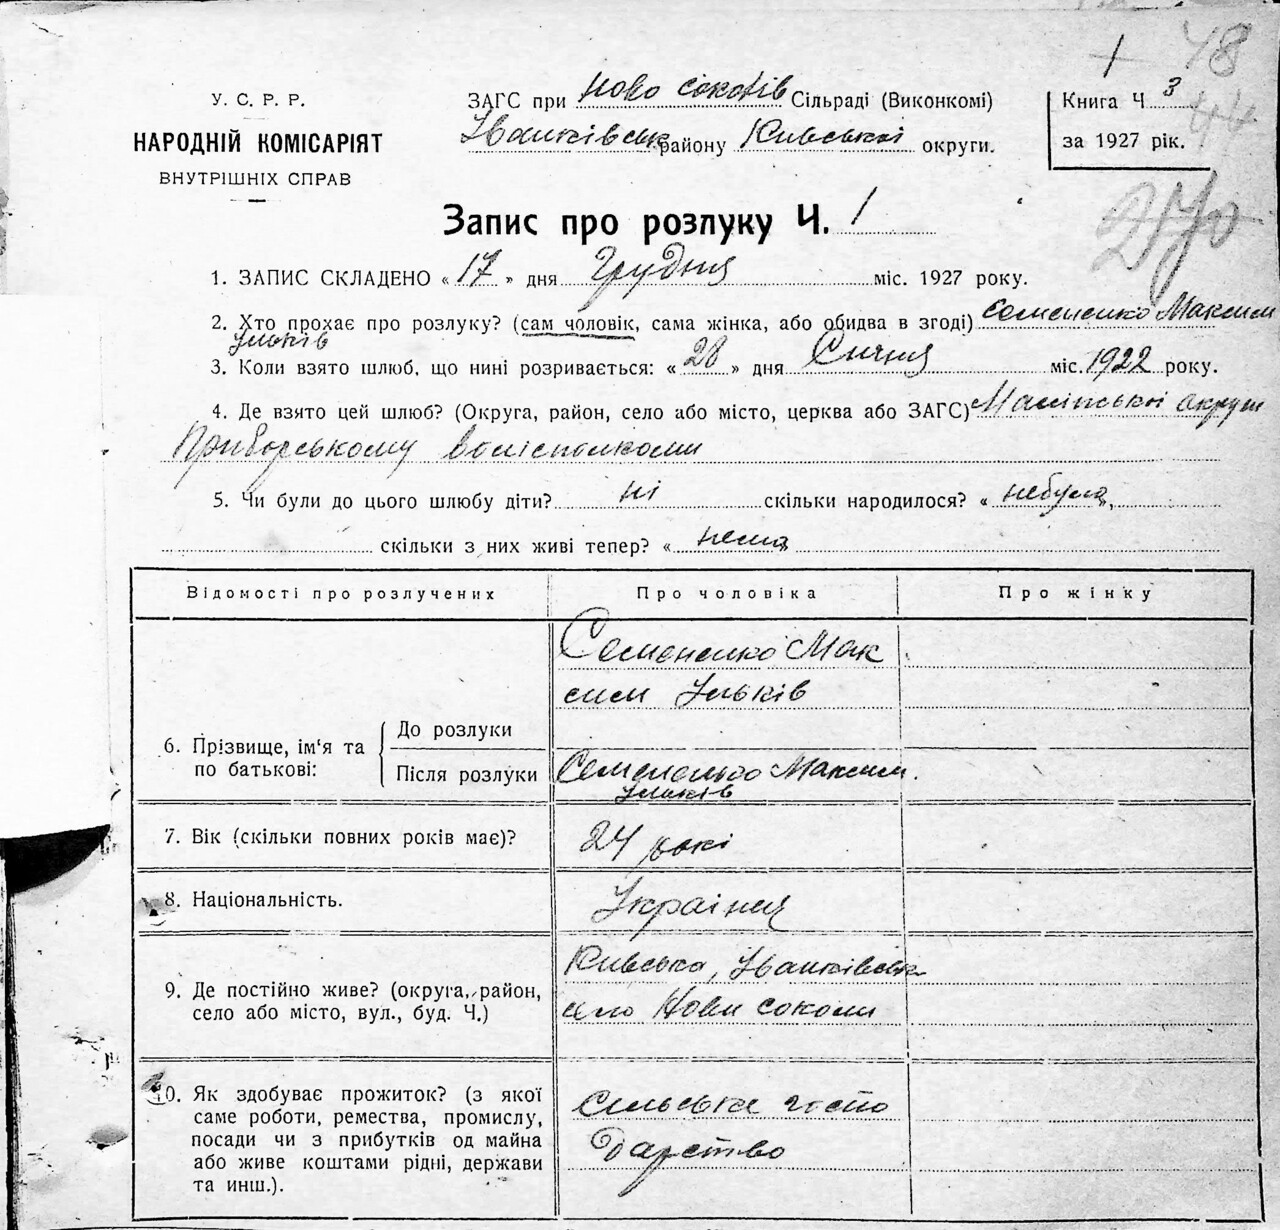 48
44
У. С. Р. Р.
НАРОДНІЙ КОМІСАРІЯТ
ВНУТРІШНІХ СПРАВ
ЗАГС при Ново соколів Сільраді (Виконкомі)
Іванківськ району Київської округи.
Книга Ч 3
за 1927 рік.
270
Запис про розлуку Ч. 1
1. ЗАПИС СКЛАДЕНО «17» дня Грудня міс. 1927 року.
2. Хто прохає про розлуку? (сам чоловік, сама жінка, або обидва в згоді) Семененко Максим
Ульків
3. Коли взято шлюб, що нині розривається: «28» дня Січня міс. 1922 року.
4. Де взято цей шлюб? (Округа, район, село або місто, церква або ЗАГС) Малінської округи
Приборському волісполкоми
5. Чи були до цього шлюбу діти? ні скільки народилося? «небула»,
скільки з них живі тепер? «нема»
Відомості про розлучених Про чоловіка Про жінку
Семененко Мак
сим Ульків
6. Прізвище, ім'я та по батькові:
До розлуки
Після розлуки Семененко Максим
Ульків
7. Вік (скільки повних років має)? 24 рокі
8. Національність. Українец
9. Де постійно живе? (округа, район,
село або місто, вул., буд. Ч.)
Київська, Іванківськ
село Нови соколи
10. Як здобуває прожиток? (з якої
саме роботи, ремества, промислу,
посади чи з прибутків од майна
або живе коштами рідні, держави
та инш.).
Сільське госпо
дарство